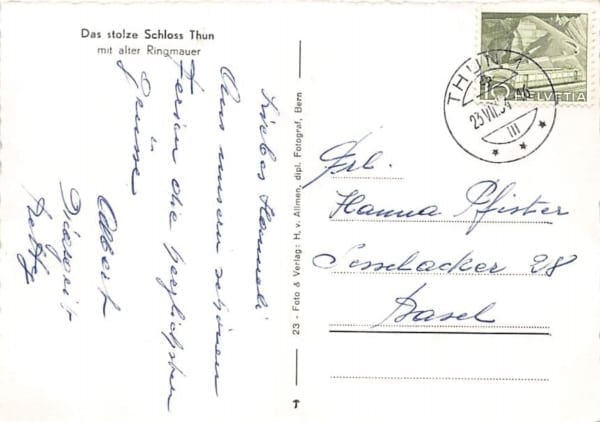 Das stolze Schloss Thun
mit alter Ringmauer
Liebes Hanneli
Aus unsern schönen
Ferien die herzlichsten
Grüsse
Albert
Betty
23 - Foto & Verlag: H. v. Allmen, dipl. Fotograf, Bern
THUN 1
23.VII.54
III
5
HELVETIA
Frl.
Hanna Pfister
Sesselacker 28
Basel